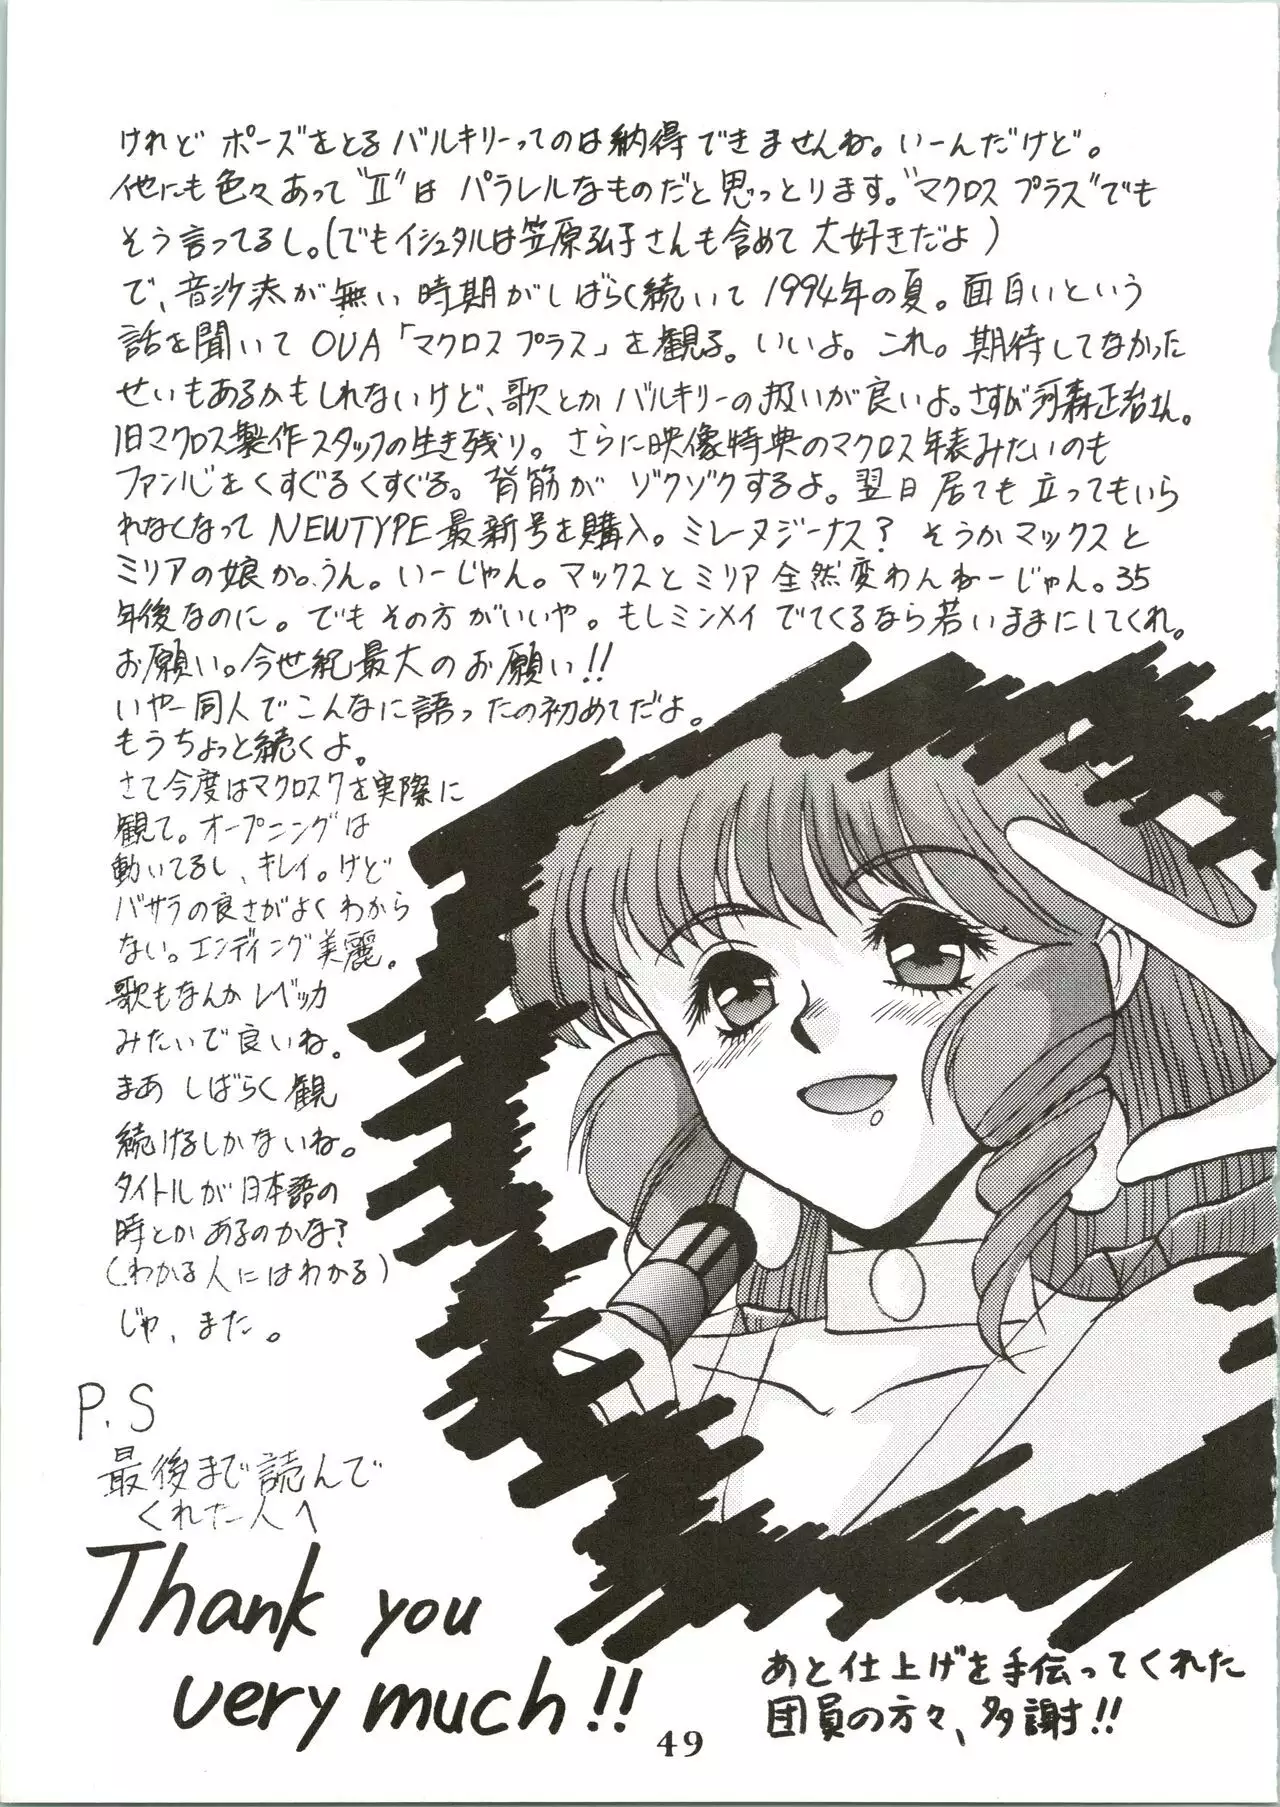 けれど ポーズをとる バルキリーってのは納得できませんね。いーんだけど。
他にも色々あって"Ⅱ"は パラレルなものだと思っとります。"マクロス プラス"でも
そう言ってるし。(でもイシュタルは笠原弘子さんも含めて 大好きだよ)
で、音沙汰が無い時期がしばらく続いて 1994年の夏。面白いという
話を聞いて OVA「マクロス プラス」を観る。いいよ。これ。期待してなかった
せいもあるかもしれないけど、歌とか バルキリーの扱いが良いよ。さすが河森正治さん。
旧マクロス製作スタッフの生き残り。さらに映像特典のマクロス年表みたいのも
ファン心をくすぐるくすぐる。背筋が ゾクゾクするよ。翌日居ても立ってもいら
れなくなって NEWTYPE 最新号を購入。ミレーヌジーナス? そうかマックスと
ミリアの娘か。うん。いーじゃん。マックスとミリア 全然変わんねーじゃん。35
年後なのに。でも その方がいいや。もしミンメイ でてくるなら若いままにしてくれ。
お願い。今世紀最大のお願い!!
いやー同人でこんなに語ったの初めてだよ。
もうちょっと続くよ。
さて今度はマクロス7を実際に
観て。オープニングは
動いてるし、キレイ。けど
バサラの良さがよくわから
ない。エンディング美麗。
歌もなんかレベッカ
みたいで良いね。
まあ しばらく観
続けるしかないね。
タイトルが日本語の
時とかあるのかな?
(わかる人にはわかる)
じゃ、また。
P.S
最後まで読んで
くれた人へ
Thank you
very much!!
あと仕上げを手伝ってくれた
団員の方々、多謝!!
49